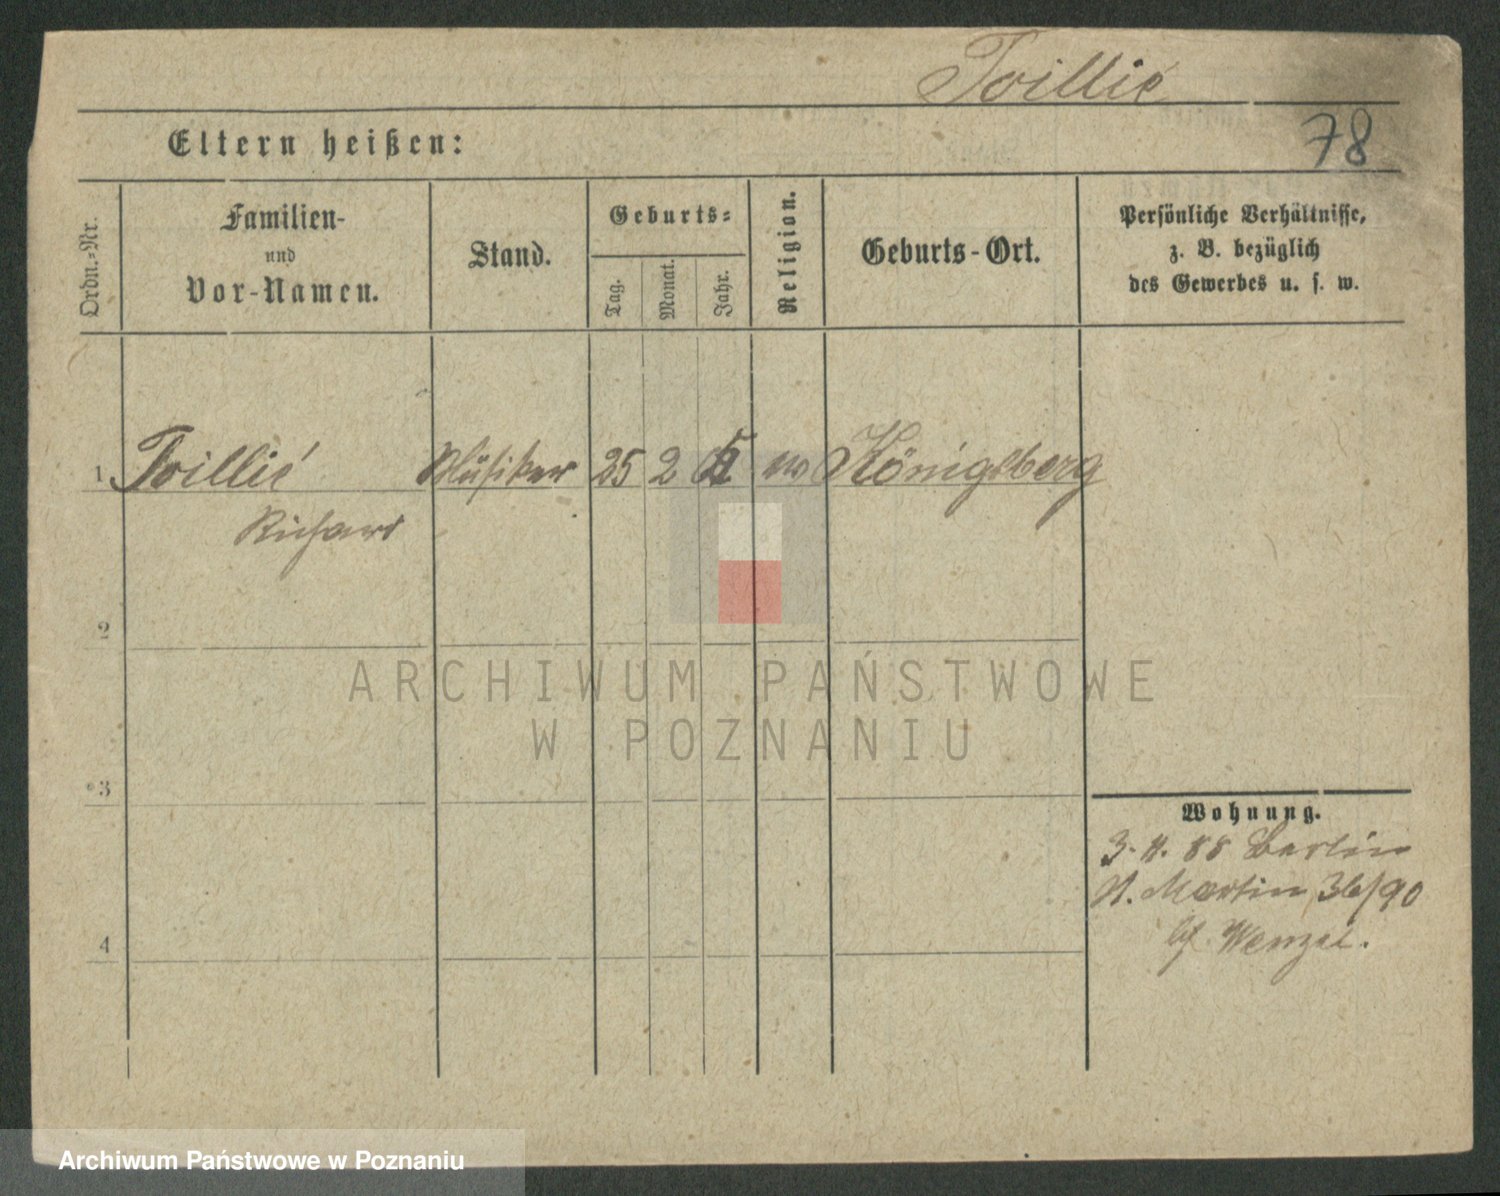 Toillié
78
Eltern heißen:
Ordn.-Nr.
Familien-
und
Vor-Namen.
Stand.
Geburts-
Tag.
Monat.
Jahr.
Religion.
Geburts-Ort.
Persönliche Verhältnisse,
z. B. bezüglich
des Gewerbes u. s. w.
1 Toillié Musiker 25 2 ev Königsberg
Richard
2
3
4
Wohnung.
3. 4. 88 Berlin
St. Martin 36/90
bf. Wenzel.
ARCHIWUM PAŃSTWOWE
W POZNANIU
Archiwum Państwowe w Poznaniu